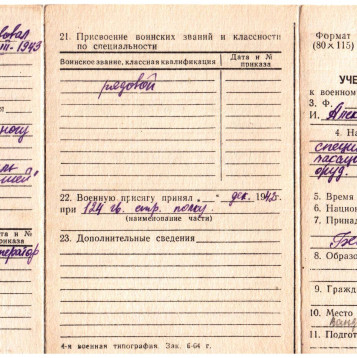 овал
III-1943
ногу
ератор
21. Присвоение воинских званий и классности
по специальности
Воинское звание, классная квалификация
Дата и №
приказа
рядовой
22. Военную присягу принял „ " дек. 1942г.
при 124 гв. стр. полку
(наименование части)
23. Дополнительные сведения
4-я военная типография. Зак. 6-64 г.
Формат
(80×115)
УЧЕ
к военном
З. Ф.
И. Алек
4. На
специ
орид.
5. Время
6. Национ
7. Принад
Бе
8. Образо
9. Гражд
10. Место
11. Подгот